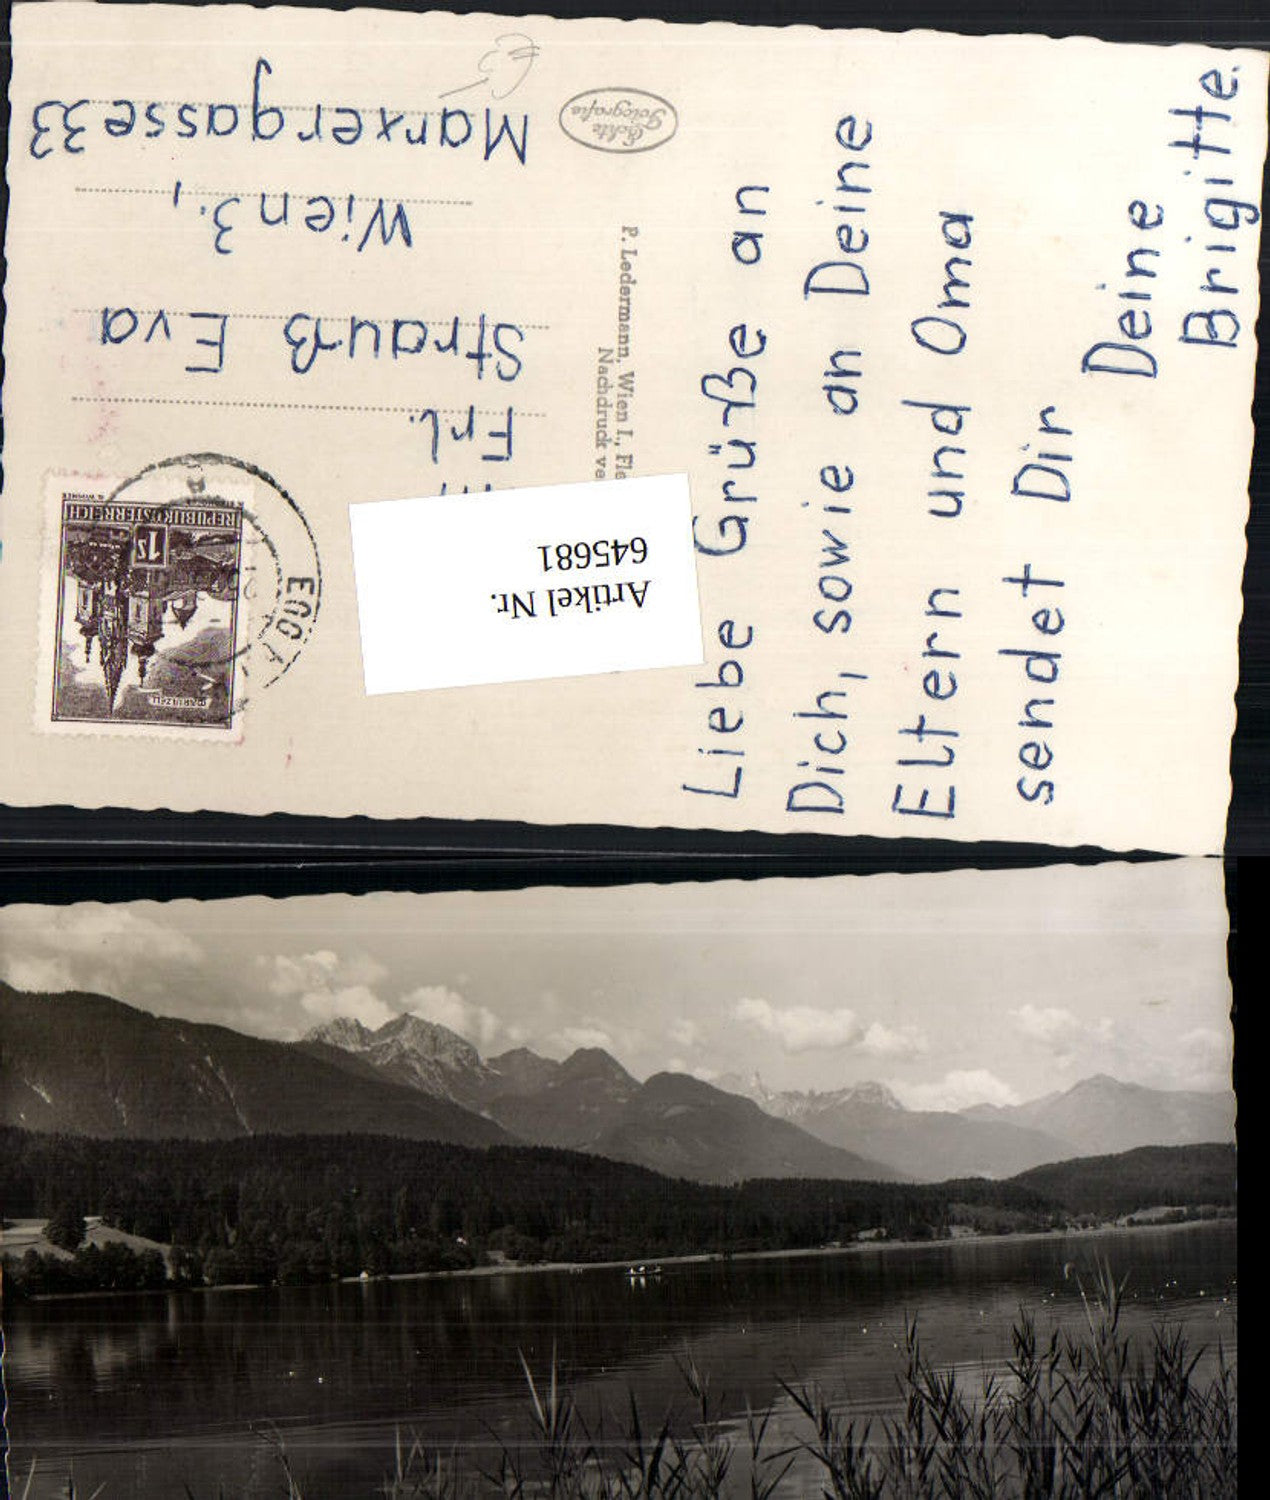 Liebe Grüße an
Dich, sowie an Deine
Eltern und Oma
sendet Dir
Deine
Brigitte.
Echte
Fotografie
P. Ledermann, Wien I.,
Nachdruck
Artikel Nr.
645681
REPUBLIK ÖSTERREICH
1 S
MARIAZELL
Frl.
Strauß Eva
Wien 3.,
Marxergasse 33